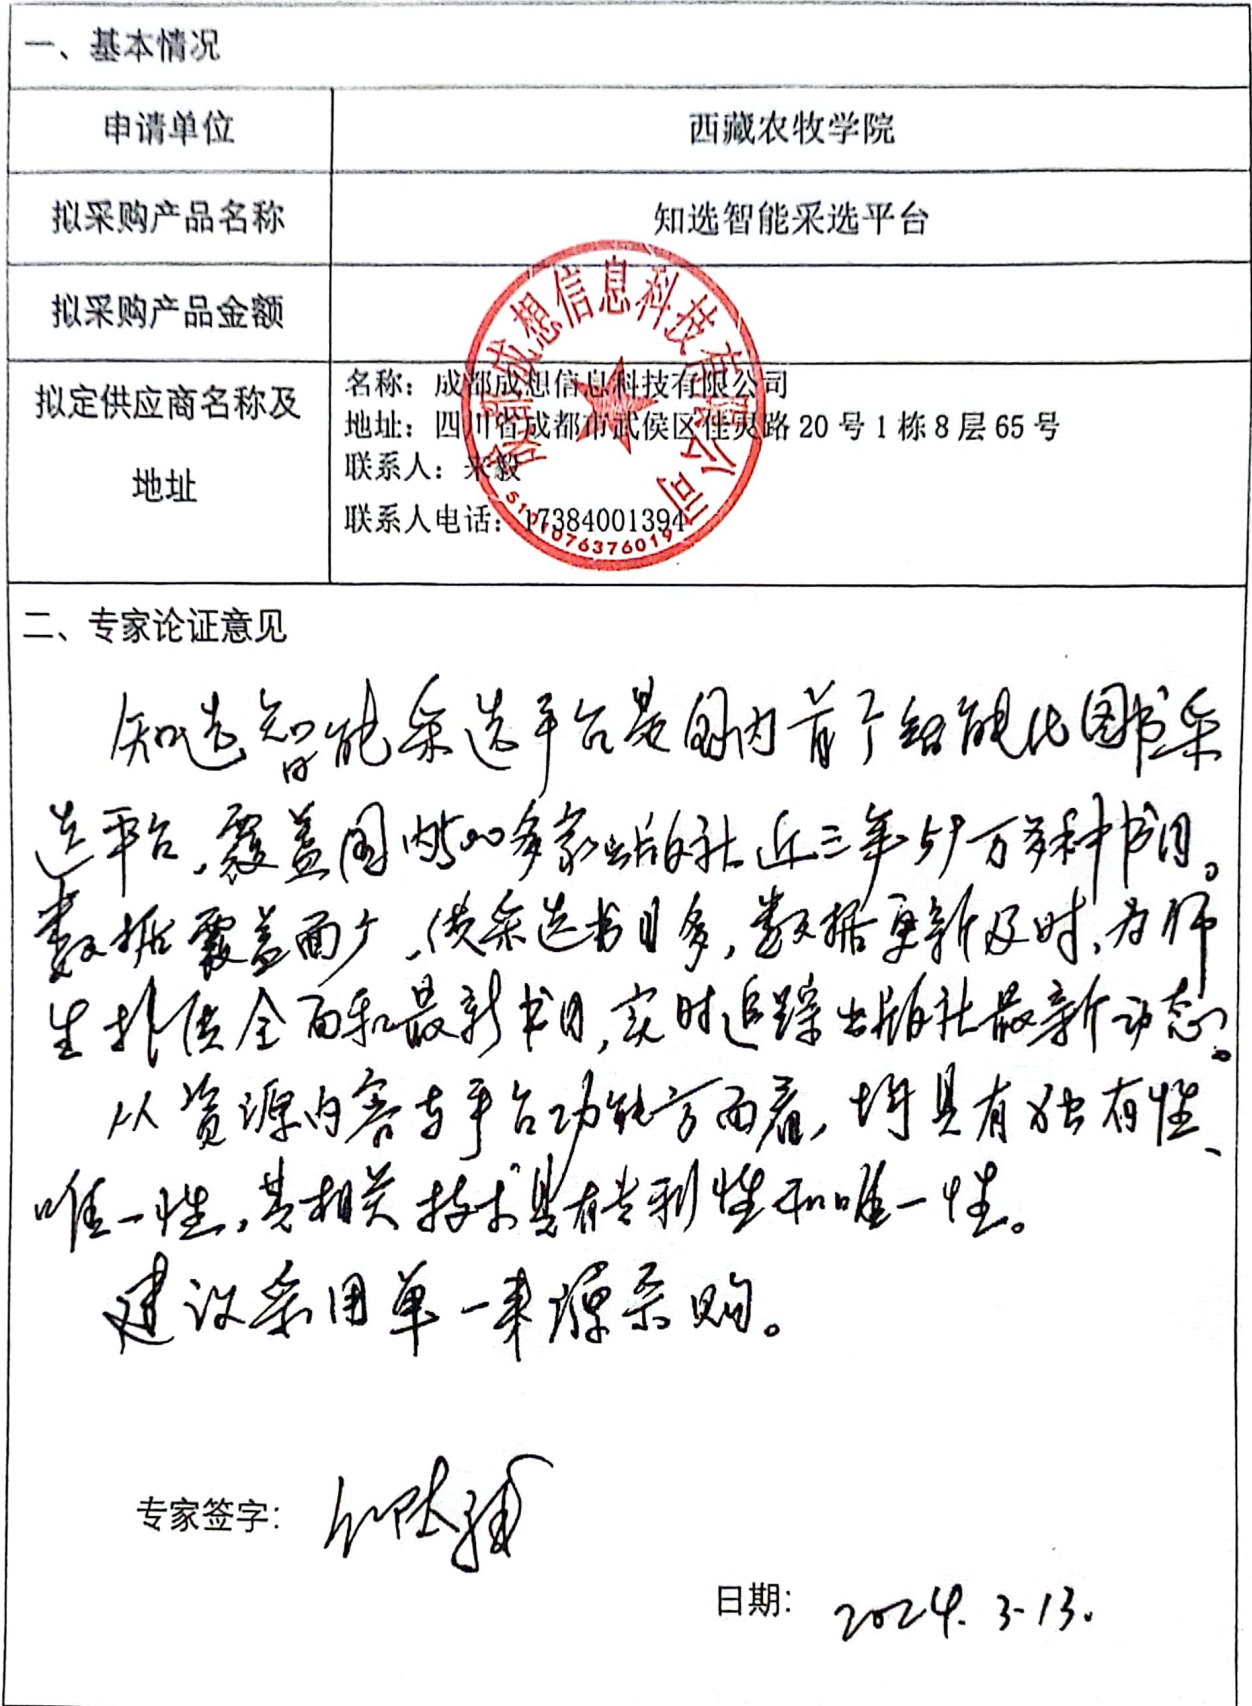 一、基本情况
申请单位
西藏农牧学院
拟采购产品名称
知选智能采选平台
拟采购产品金额
拟定供应商名称及
地址
名称：成都成想信息科技有限公司
地址：四川省成都市武侯区佳灵路 20 号 1 栋 8 层 65 号
联系人：来毅
联系人电话：17384001394
成都成想信息科技有限公司
5101076376019
二、专家论证意见
知选智能采选平台是国内首个智能化图书采
选平台，覆盖国内500多家出版社近三年59万多种书目。
数据覆盖面广，供采选书目多，数据更新及时，为师
生提供全面和最新书目，实时追踪出版社最新动态。
从资源内容与平台功能方面看，均具有独有性、
唯一性，其相关技术具有专利性和唯一性。
建议采用单一来源采购。
专家签字：
日期：2024.3.13.